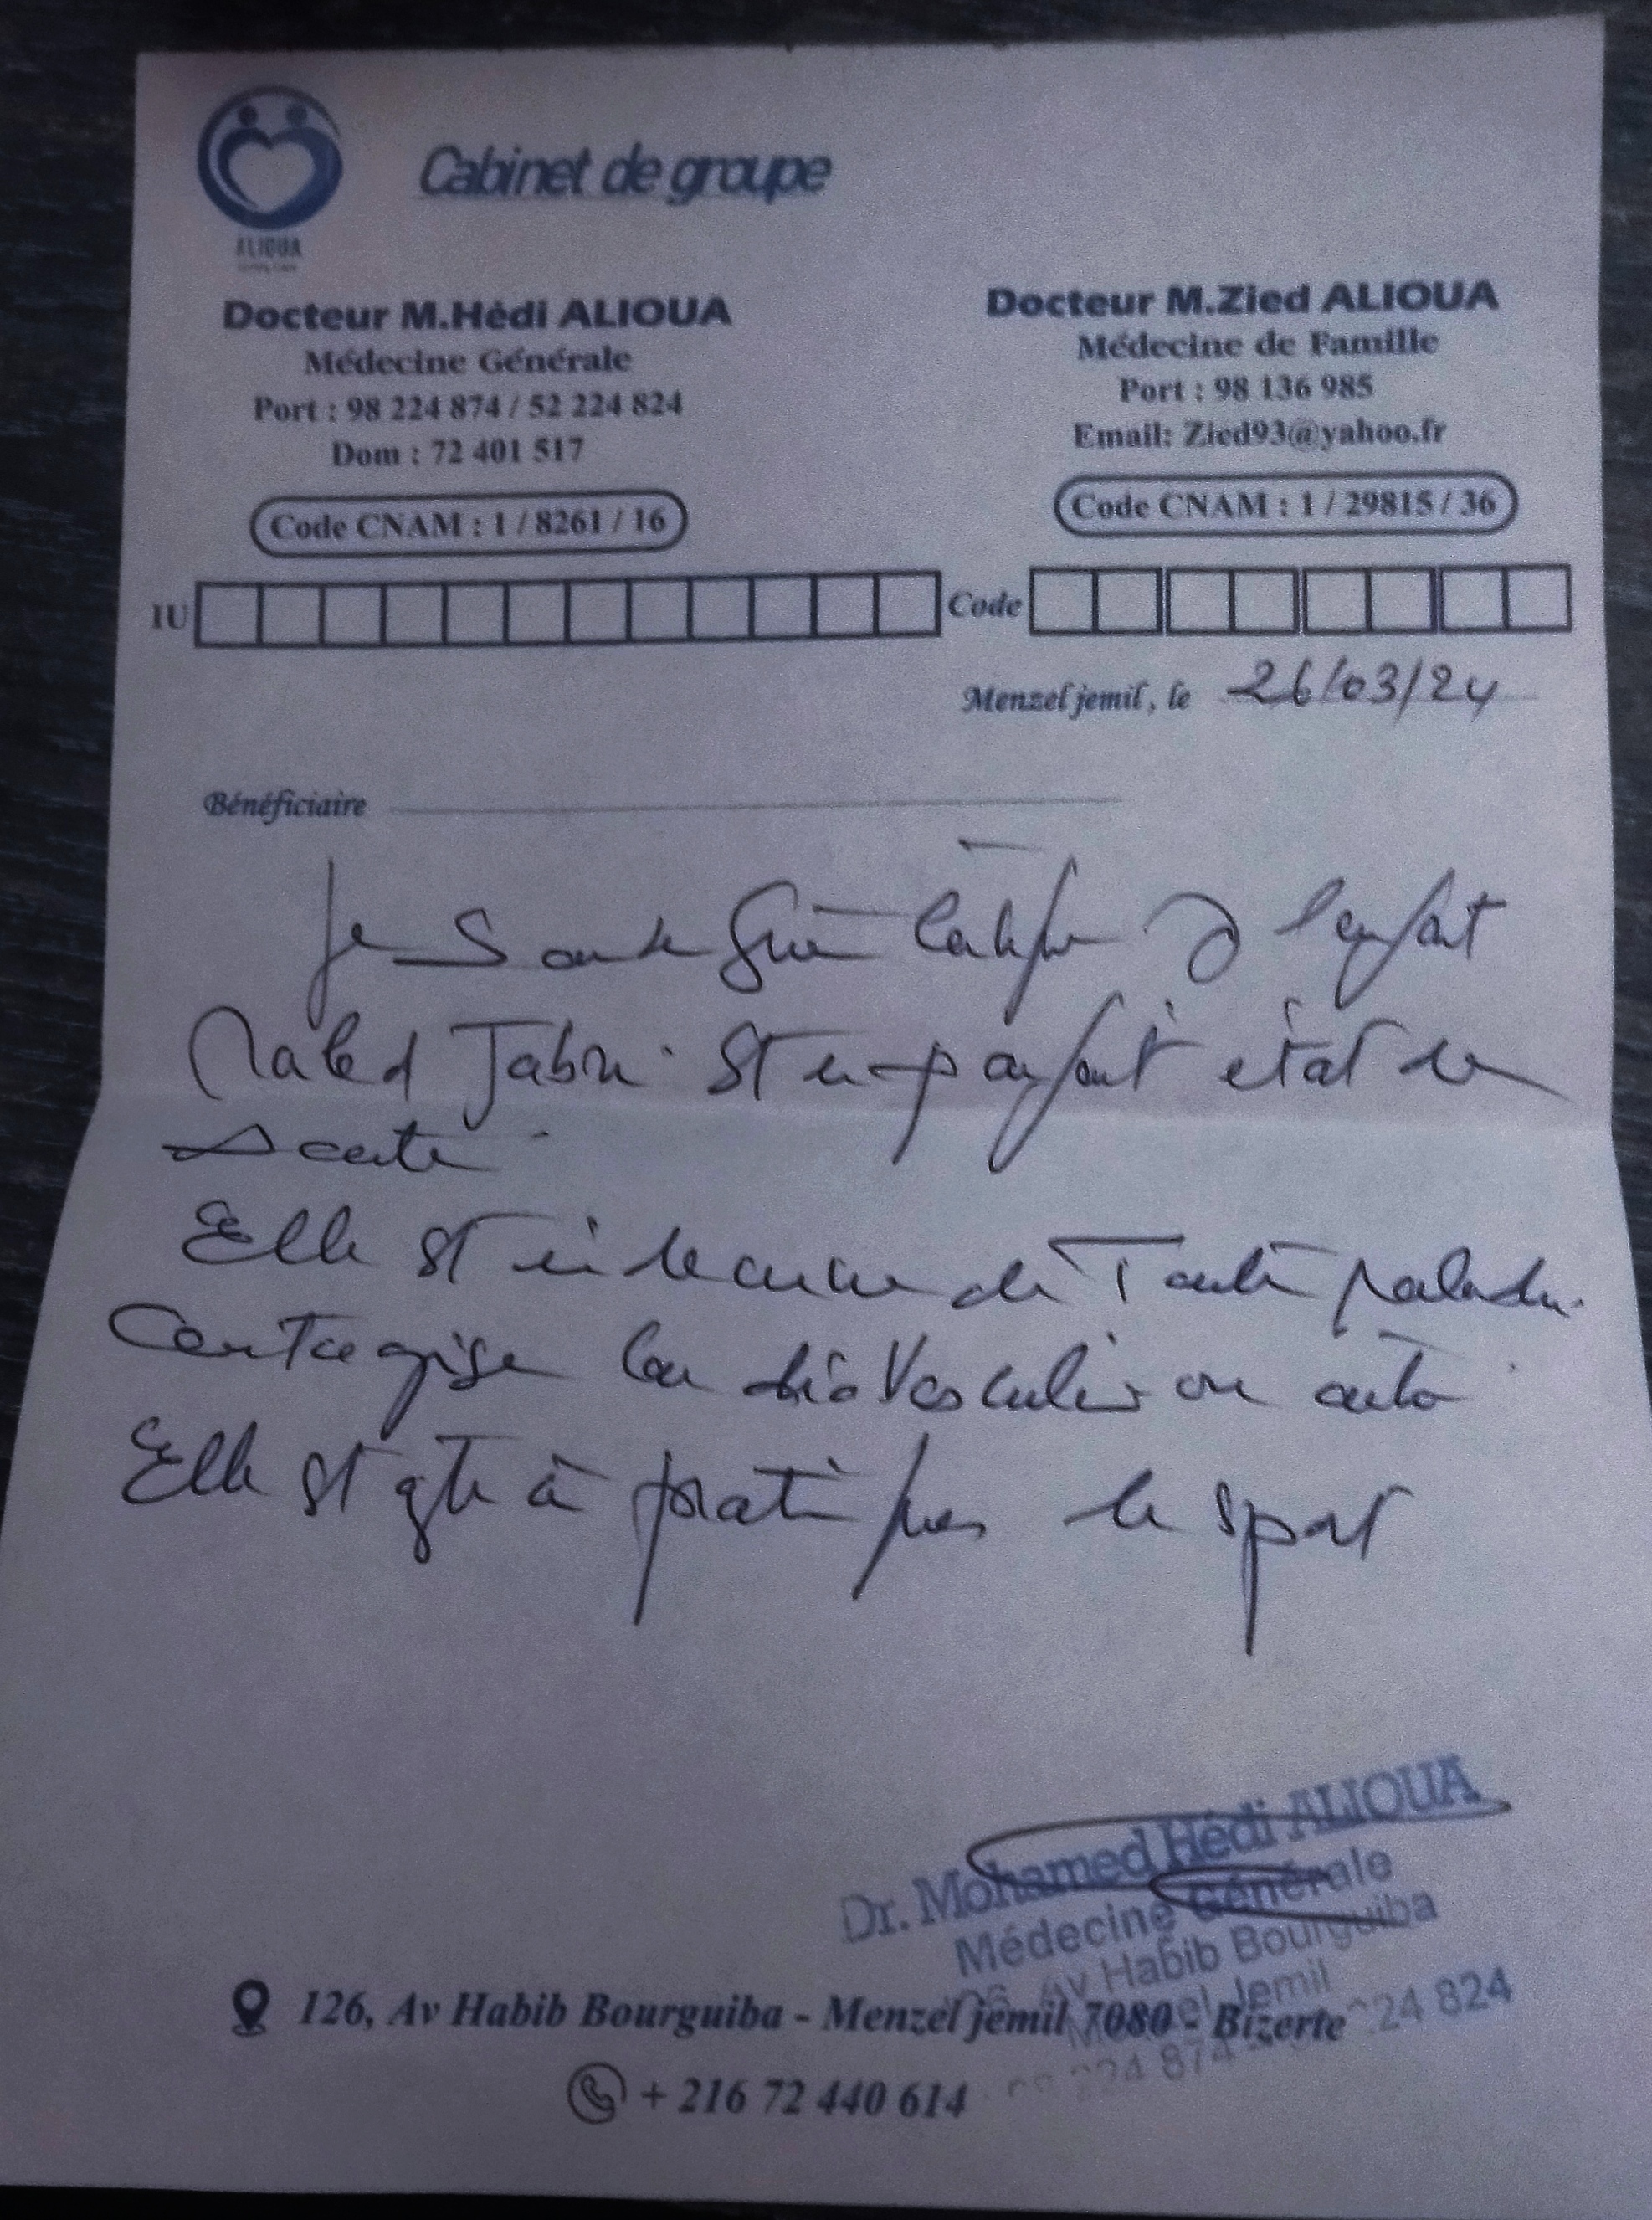 ALIOUA
Cabinet de groupe
Docteur M.Hédi ALIOUA
Médecine Générale
Port : 98 224 874 / 52 224 824
Dom : 72 401 517
Code CNAM : 1 / 8261 / 16
Docteur M.Zied ALIOUA
Médecine de Famille
Port : 98 136 985
Email: Zied93@yahoo.fr
Code CNAM : 1 / 29815 / 36
IU
Code
Menzel jemil, le 26/03/24
Bénéficiaire
Je l'enfant
Jabri st en parfait état de
santé
Elle st de toute maladie
contagieuse ou
Elle st apte à pratiquer le sport
Dr. Mohamed Hédi ALIOUA
Médecine Générale
Av Habib Bourguiba
Menzel Jemil
224 874 224 824
126, Av Habib Bourguiba - Menzel jemil 7080 - Bizerte
+ 216 72 440 614